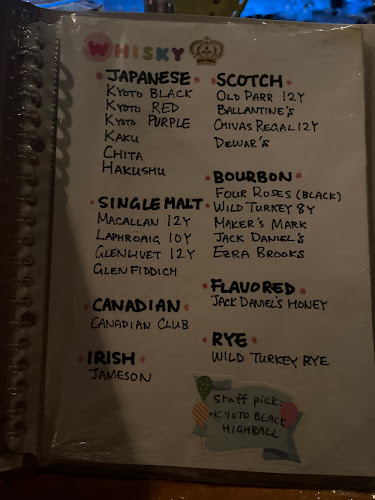 WHISKY
JAPANESE
KYOTO BLACK
KYOTO RED
KYOTO PURPLE
KAKU
CHITA
HAKUSHU
SINGLE MALT
MACALLAN 12Y
LAPHROAIG 10Y
GLENLIVET 12Y
GLENFIDDICH
CANADIAN
CANADIAN CLUB
IRISH
JAMESON
SCOTCH
OLD PARR 12Y
BALLANTINE'S
CHIVAS REGAL 12Y
DEWAR'S
BOURBON
FOUR ROSES (BLACK)
WILD TURKEY 8Y
MAKER'S MARK
JACK DANIEL'S
EZRA BROOKS
FLAVORED
JACK DANIEL'S HONEY
RYE
WILD TURKEY RYE
Staff pick:
*KYOTO BLACK
HIGHBALL